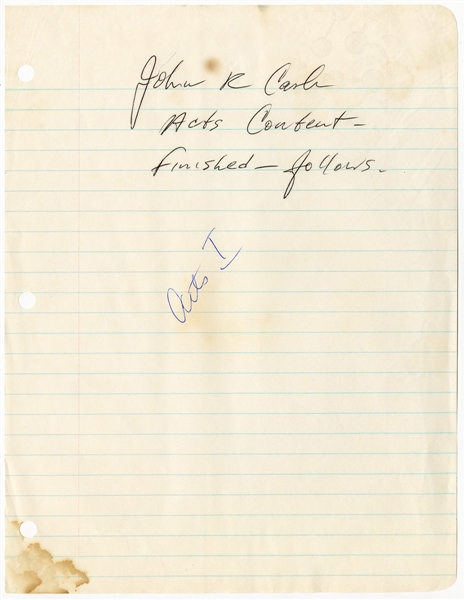 John R Cash
Acts Content-
finished- follows.
Acts I